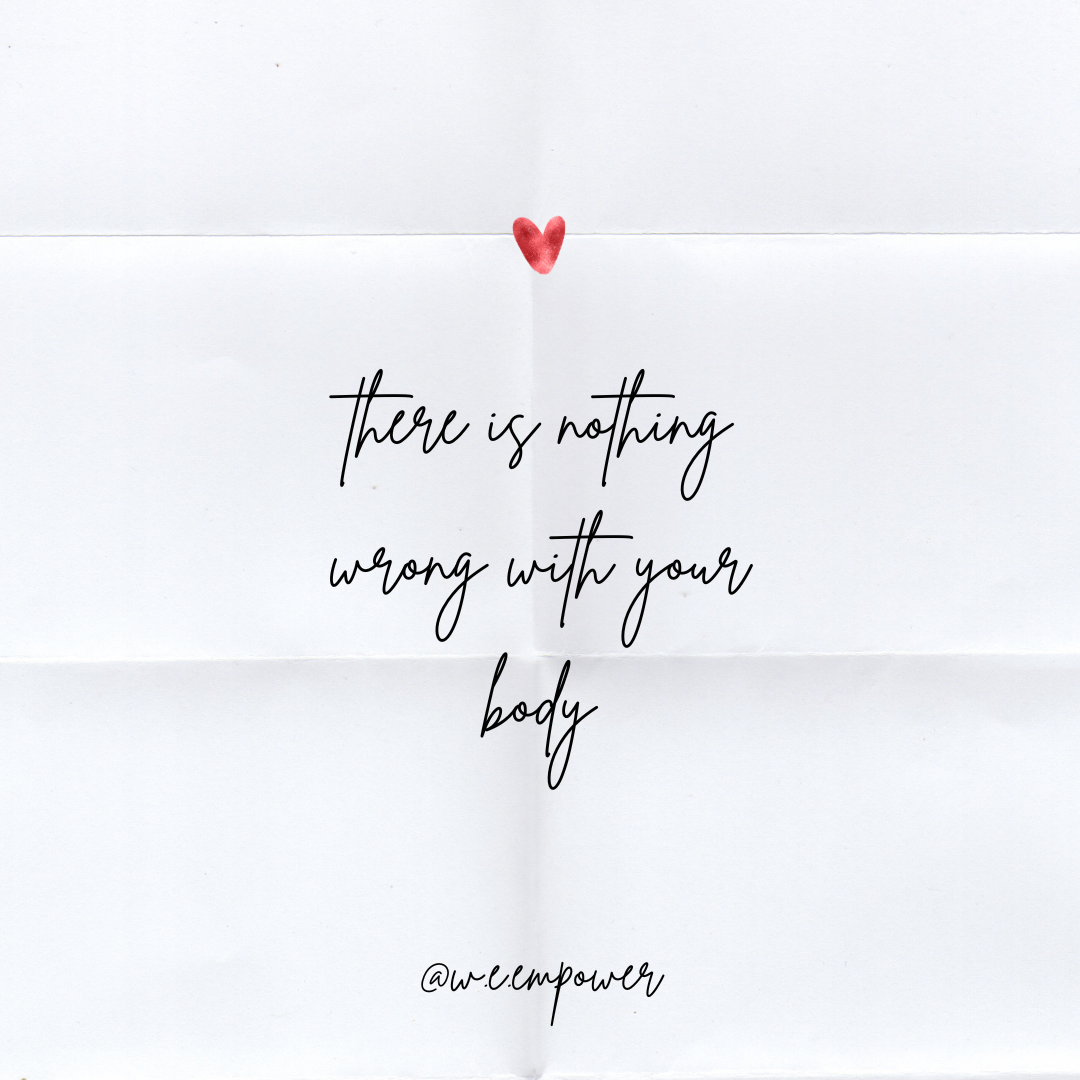 there is nothing
wrong with your
body
@w.e.empower